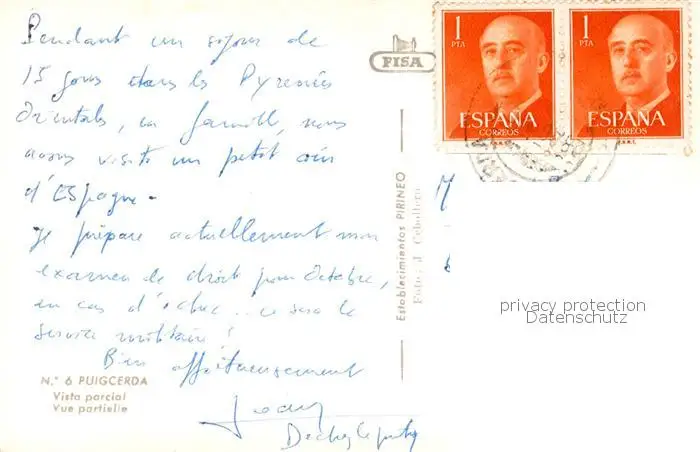 Pendant un séjour de
15 jours dans les Pyrénées
Orientales, en famille, nous
avons visité un petit coin
d'Espagne.
Je prépare actuellement mon
examen de droit pour Octobre,
en cas d'échec... ce sera le
service militaire !
Bien affectueusement
N.º 6 PUIGCERDA
Vista parcial
Vue partielle
FISA
Establecimientos PIRINEO
Foto: J.
1
PTA
ESPAÑA
CORREOS
F.N.M.T.
1
PTA
ESPAÑA
CORREOS
F.N.M.T.
M
privacy protection
Datenschutz